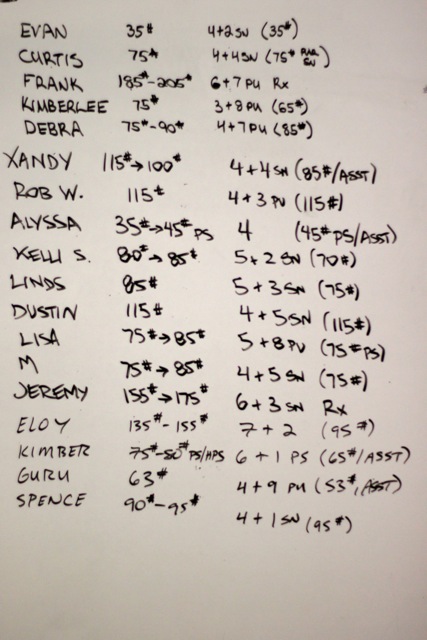 EVAN 35# 4+2SN (35#)
CURTIS 75# 4+4SN (75# BAR SN)
FRANK 185#-205# 6+7 PU Rx
KIMBERLEE 75# 3+8 PU (65#)
DEBRA 75#-90# 4+7 PU (85#)
XANDY 115#→100# 4+4 SN (85#/ASST)
ROB W. 115# 4+3 PU (115#)
ALYSSA 35#→45# PS 4 (45# PS/ASST)
KELLI S. 80#→85# 5+2 SN (70#)
LINDS 85# 5+3 SN (75#)
DUSTIN 115# 4+5SN (115#)
LISA 75#→85# 5+8 PU (75# PS)
M 75#→85# 4+5 SN (75#)
JEREMY 155#→175# 6+3 SN Rx
ELOY 135#-155# 7+2 (95#)
KIMBER 75#-80# PS/HPS 6+1 PS (65#/ASST)
GURU 63# 4+9 PU (53#, ASST)
SPENCE 90#-95# 4+1 SN (95#)